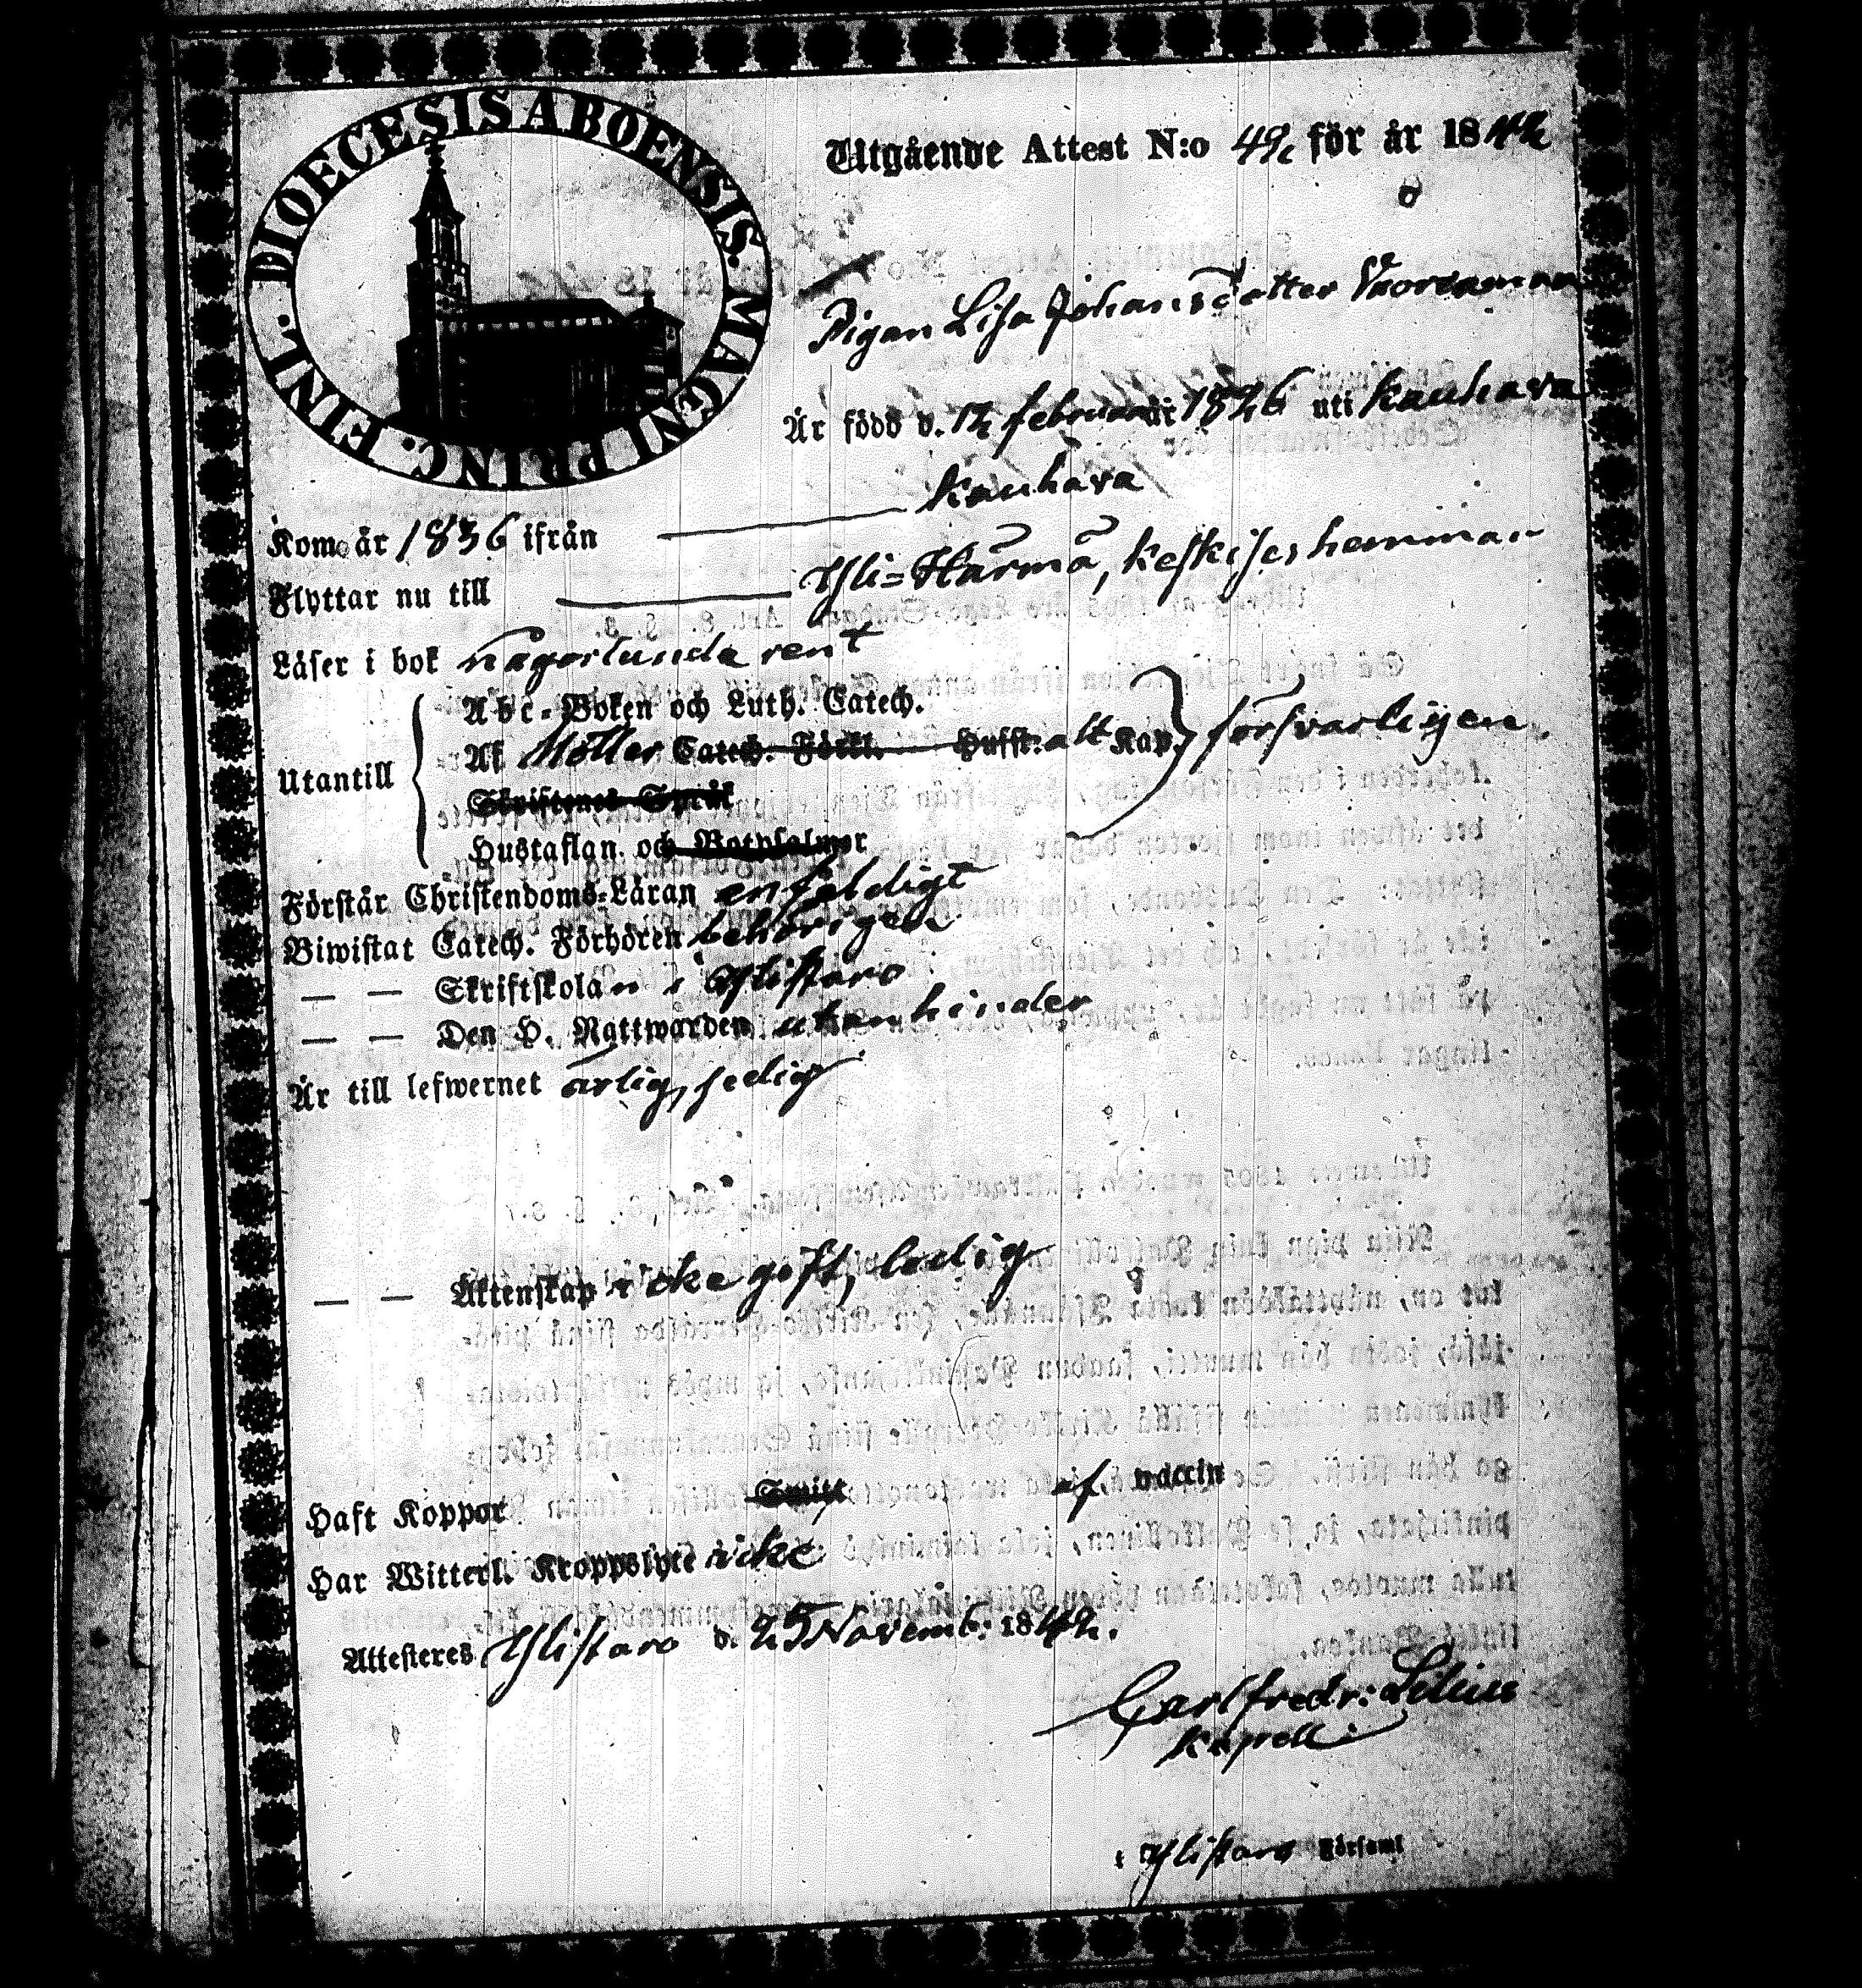 DIOECESIS ABOENSIS. MAGNI PRINC. FINL.
Utgående Attest N:o 42 för år 1842
Pigan Lisa Johansdotter
Är född d. 12 februari 1826 uti Kauhava
Kom år 1836 ifrån Kauhava
Flyttar nu till Yli=Härmä, Keskises hemman
Läser i bok någorlunda rent
Abc-Boken och Luth. Catech.
Utantill Af Möller Catech. Förkl. Hufst. alt Kap. försvarligen.
Skriftenes Språk
Hustaflan och Botpsalmer
Förstår Christendoms-Läran enfaldigt
Biwistat Catech. Förhören behörigen
— — Skriftskolan i Ylistaro
— — Den H. Nattwarden utan hinder
Är till lefwernet ärlig, sedig
— — Äktenskap icke gift, ledig
Haft Koppor Smitt af vaccin
Har Witterl. Kroppslyte icke
Attesteres Ylistaro d. 25 Novemb: 1842.
Carl Fredr: Lilius
Kapell
i Ylistaro Församl